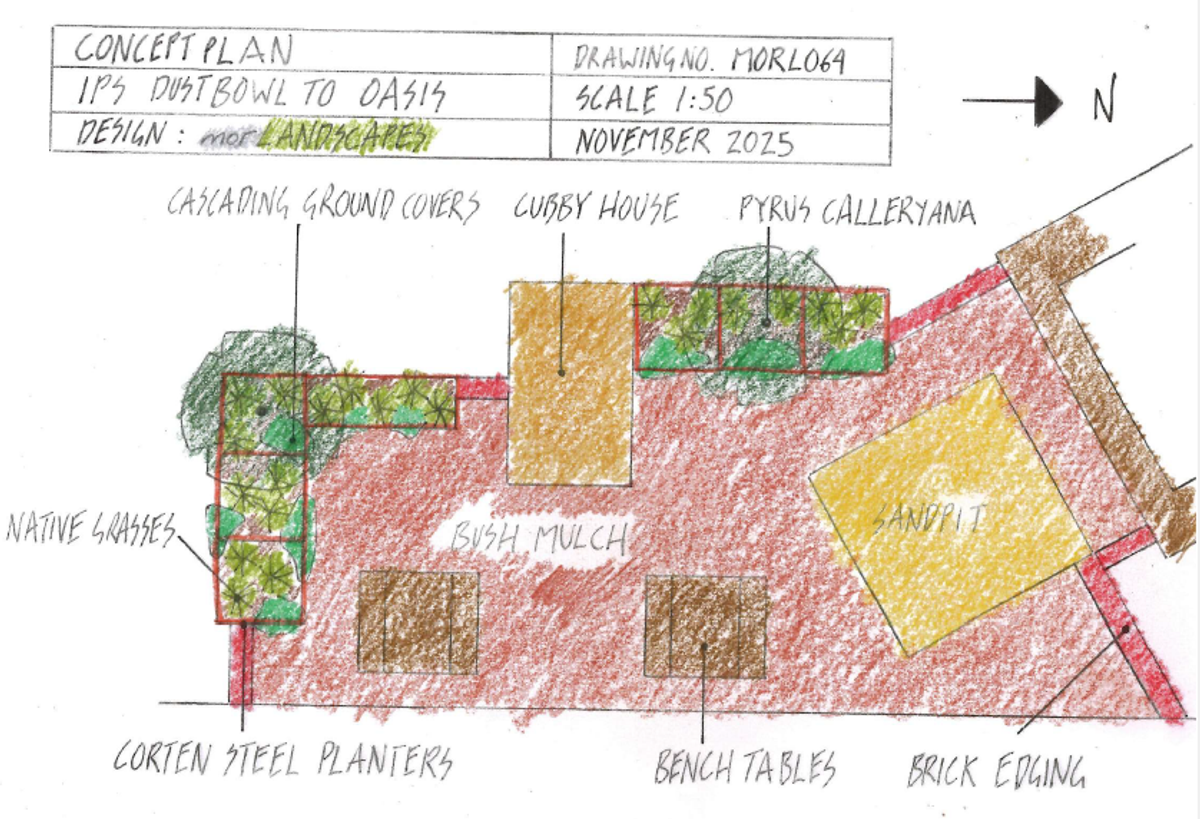 CONCEPT PLAN
DRAWING NO. MORL064
IPS DUSTBOWL TO OASIS
SCALE 1:50
DESIGN : morLANDSCAPES
NOVEMBER 2025
N
CASCADING GROUND COVERS
CUBBY HOUSE
PYRUS CALLERYANA
NATIVE GRASSES
BUSH MULCH
SANDPIT
CORTEN STEEL PLANTERS
BENCH TABLES
BRICK EDGING